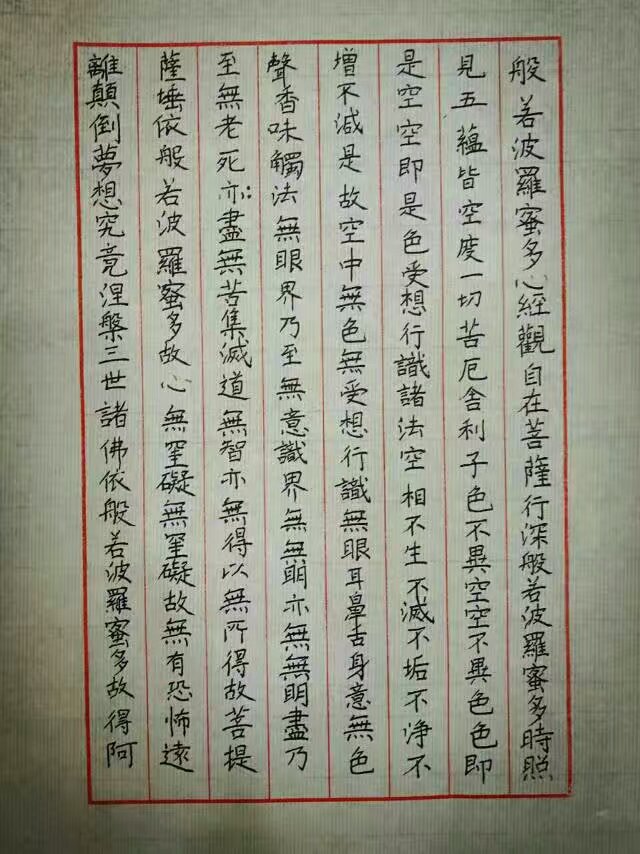 般若波羅蜜多心經觀自在菩薩行深般若波羅蜜多時照
見五蘊皆空度一切苦厄舍利子色不異空空不異色色即
是空空即是色受想行識諸法空相不生不滅不垢不淨不
增不減是故空中無色無受想行識無眼耳鼻舌身意無色
聲香味觸法無眼界乃至無意識界無無明亦無無明盡乃
至無老死亦盡無苦集滅道無智亦無得以無所得故菩提
薩埵依般若波羅蜜多故心無罣礙無罣礙故無有恐怖遠
離顛倒夢想究竟涅槃三世諸佛依般若波羅蜜多故得阿